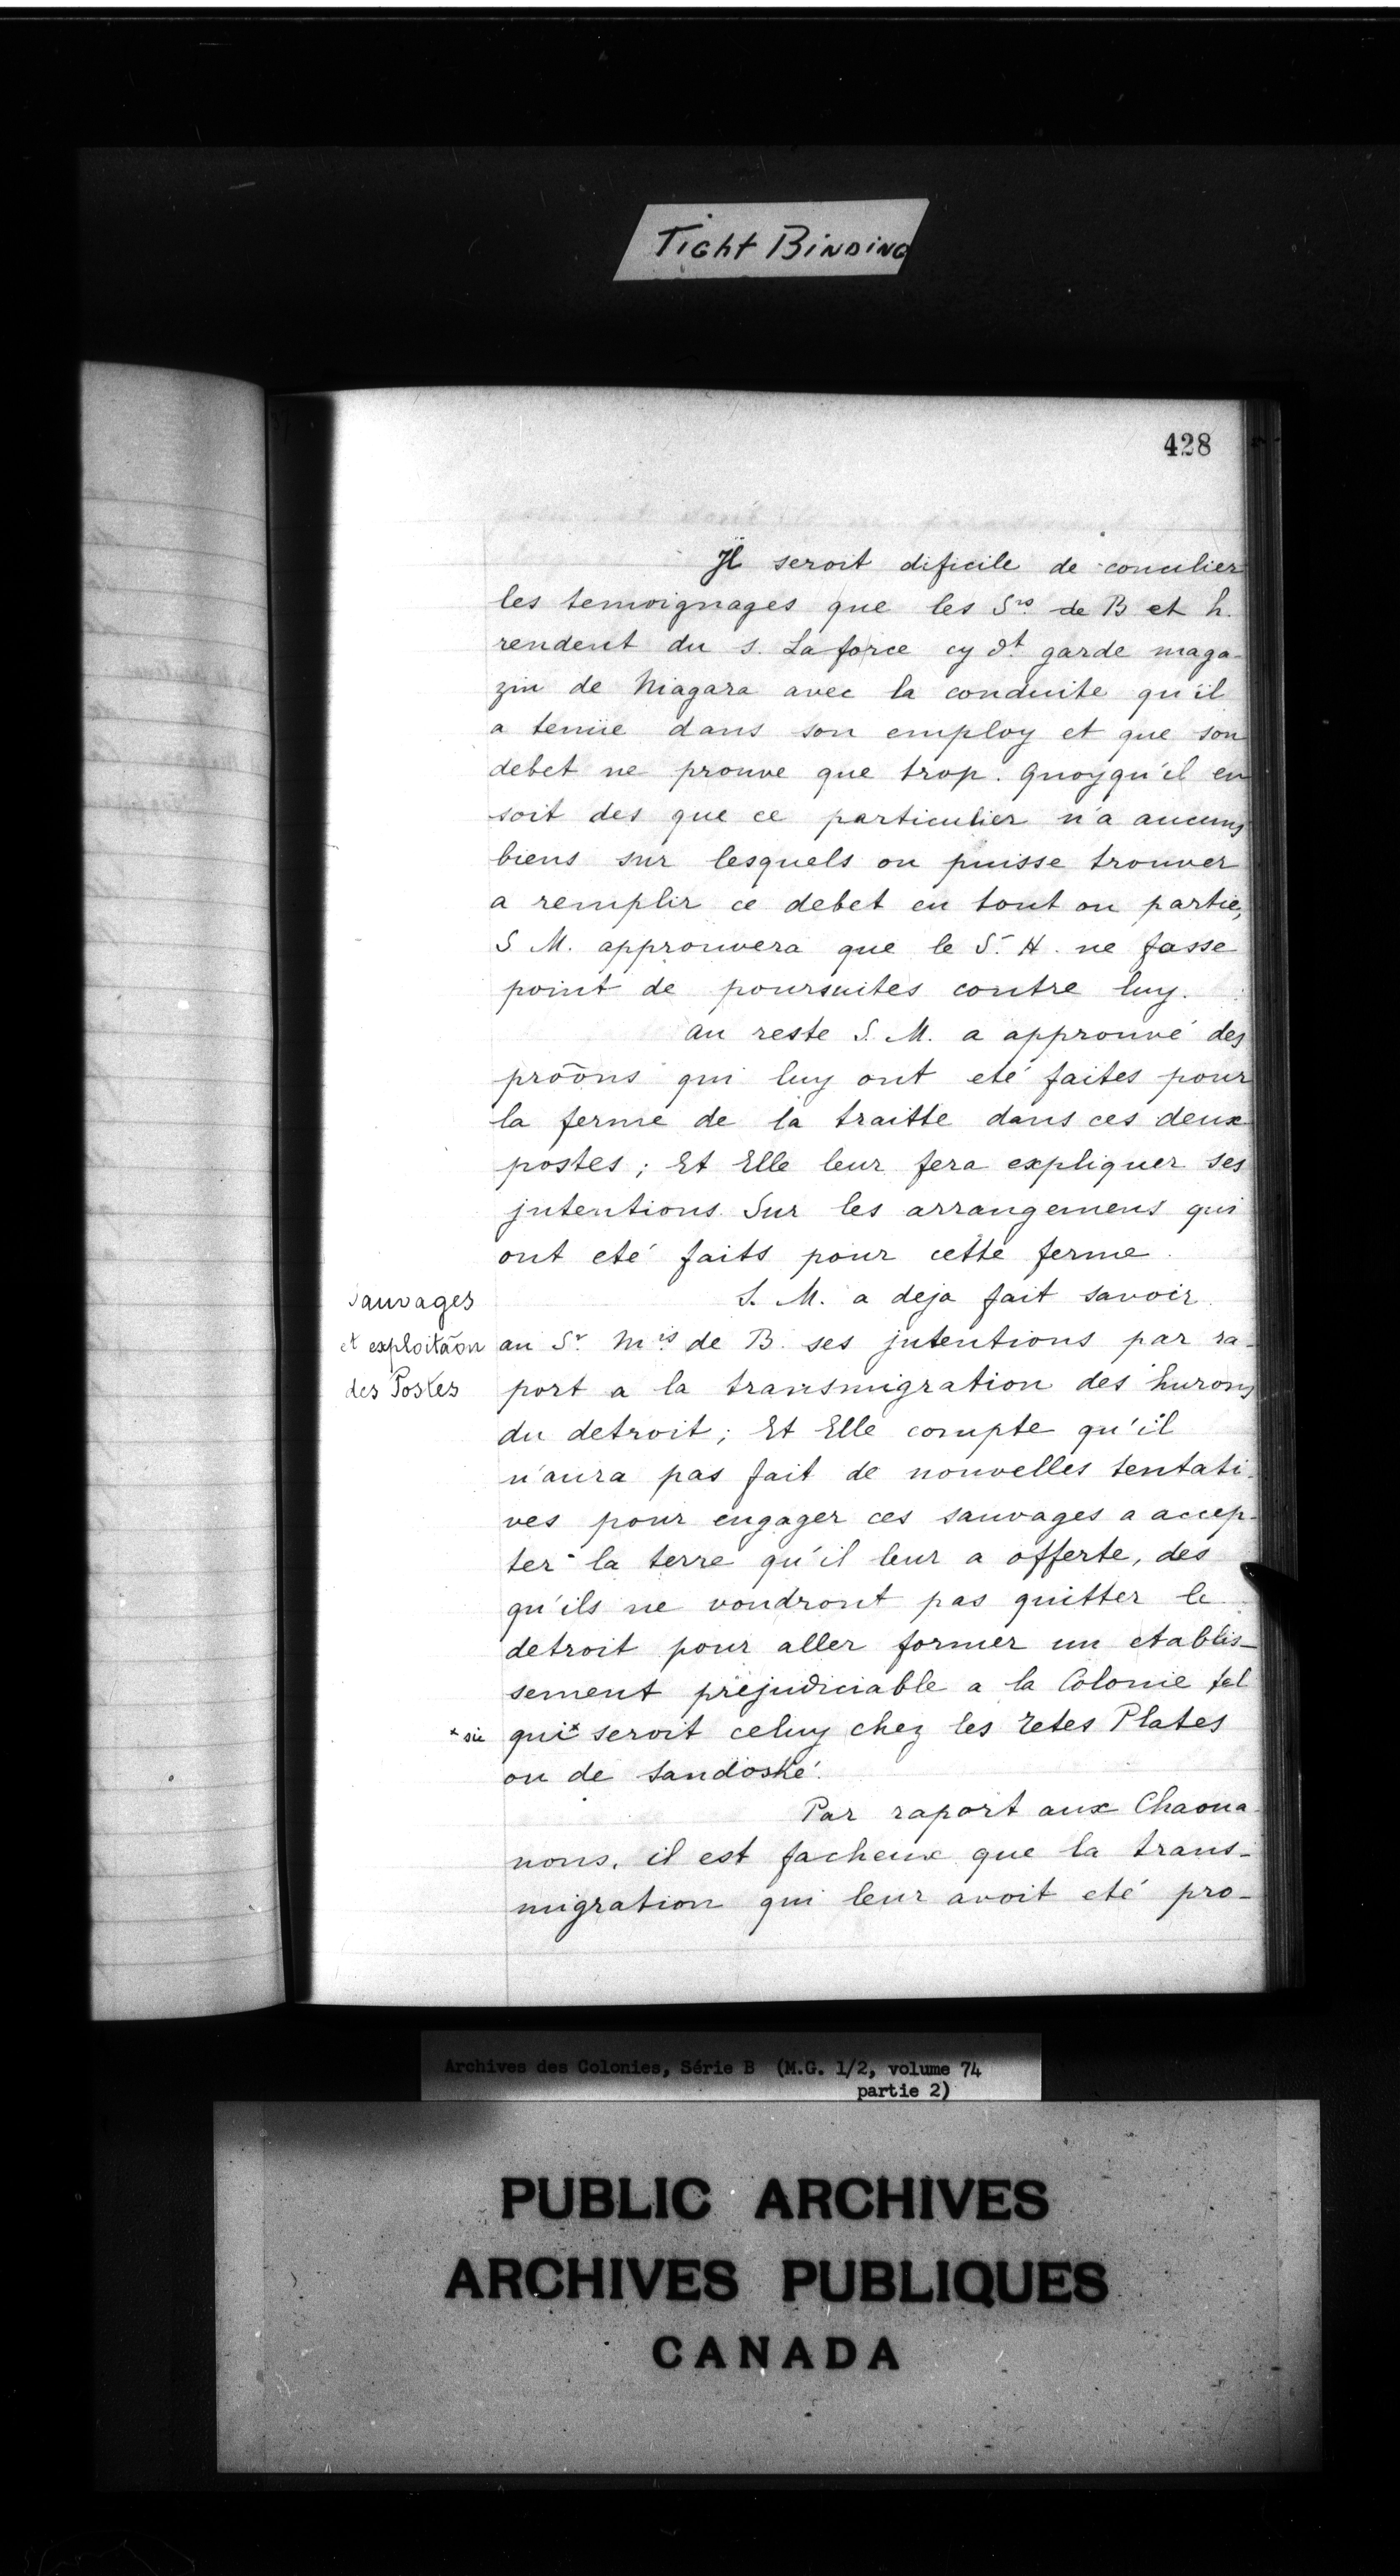 Tight Binding
428
Jl seroit dificile de concilier
les temoignages que les Srs de B et h.
rendent du s. Laforce cy dt garde maga-
zin de Niagara avec la conduite qu'il
a tenüe dans son employ et que son
debet ne prouve que trop. Quoyqu'il en
soit des que ce particulier n'a aucuns
biens sur lesquels on puisse trouver
a remplir ce debet en tout ou partie,
S M. approuvera que le Sr H. ne fasse
point de poursuites contre luy.
au reste S. M. a approuvé des
prôõns qui luy ont eté faites pour
la ferme de la traitte dans ces deux
postes; Et Elle leur fera expliquer ses
jntentions Sur les arrangemens qui
ont eté faits pour cette ferme.
Sauvages
et exploitãon
des Postes
S. M. a deja fait savoir
au Sr Mis de B. ses jntentions par ra-
port a la transmigration des hurons
du detroit; Et Elle compte qu'il
n'aura pas fait de nouvelles tentati-
ves pour engager ces sauvages a accep-
ter la terre qu'il leur a offerte, des
qu'ils ne voudront pas quitter le
detroit pour aller former un etablis-
sement préjudiciable a la Colonie tel
* sic qui* seroit celuy chez les Tetes Plates
ou de Sandoské.
Par raport aux Chaoua-
nons, il est facheux que la trans-
migration qui leur avoit eté pro-
Archives des Colonies, Série B (M.G. 1/2, volume 74
partie 2)
PUBLIC ARCHIVES
ARCHIVES PUBLIQUES
CANADA